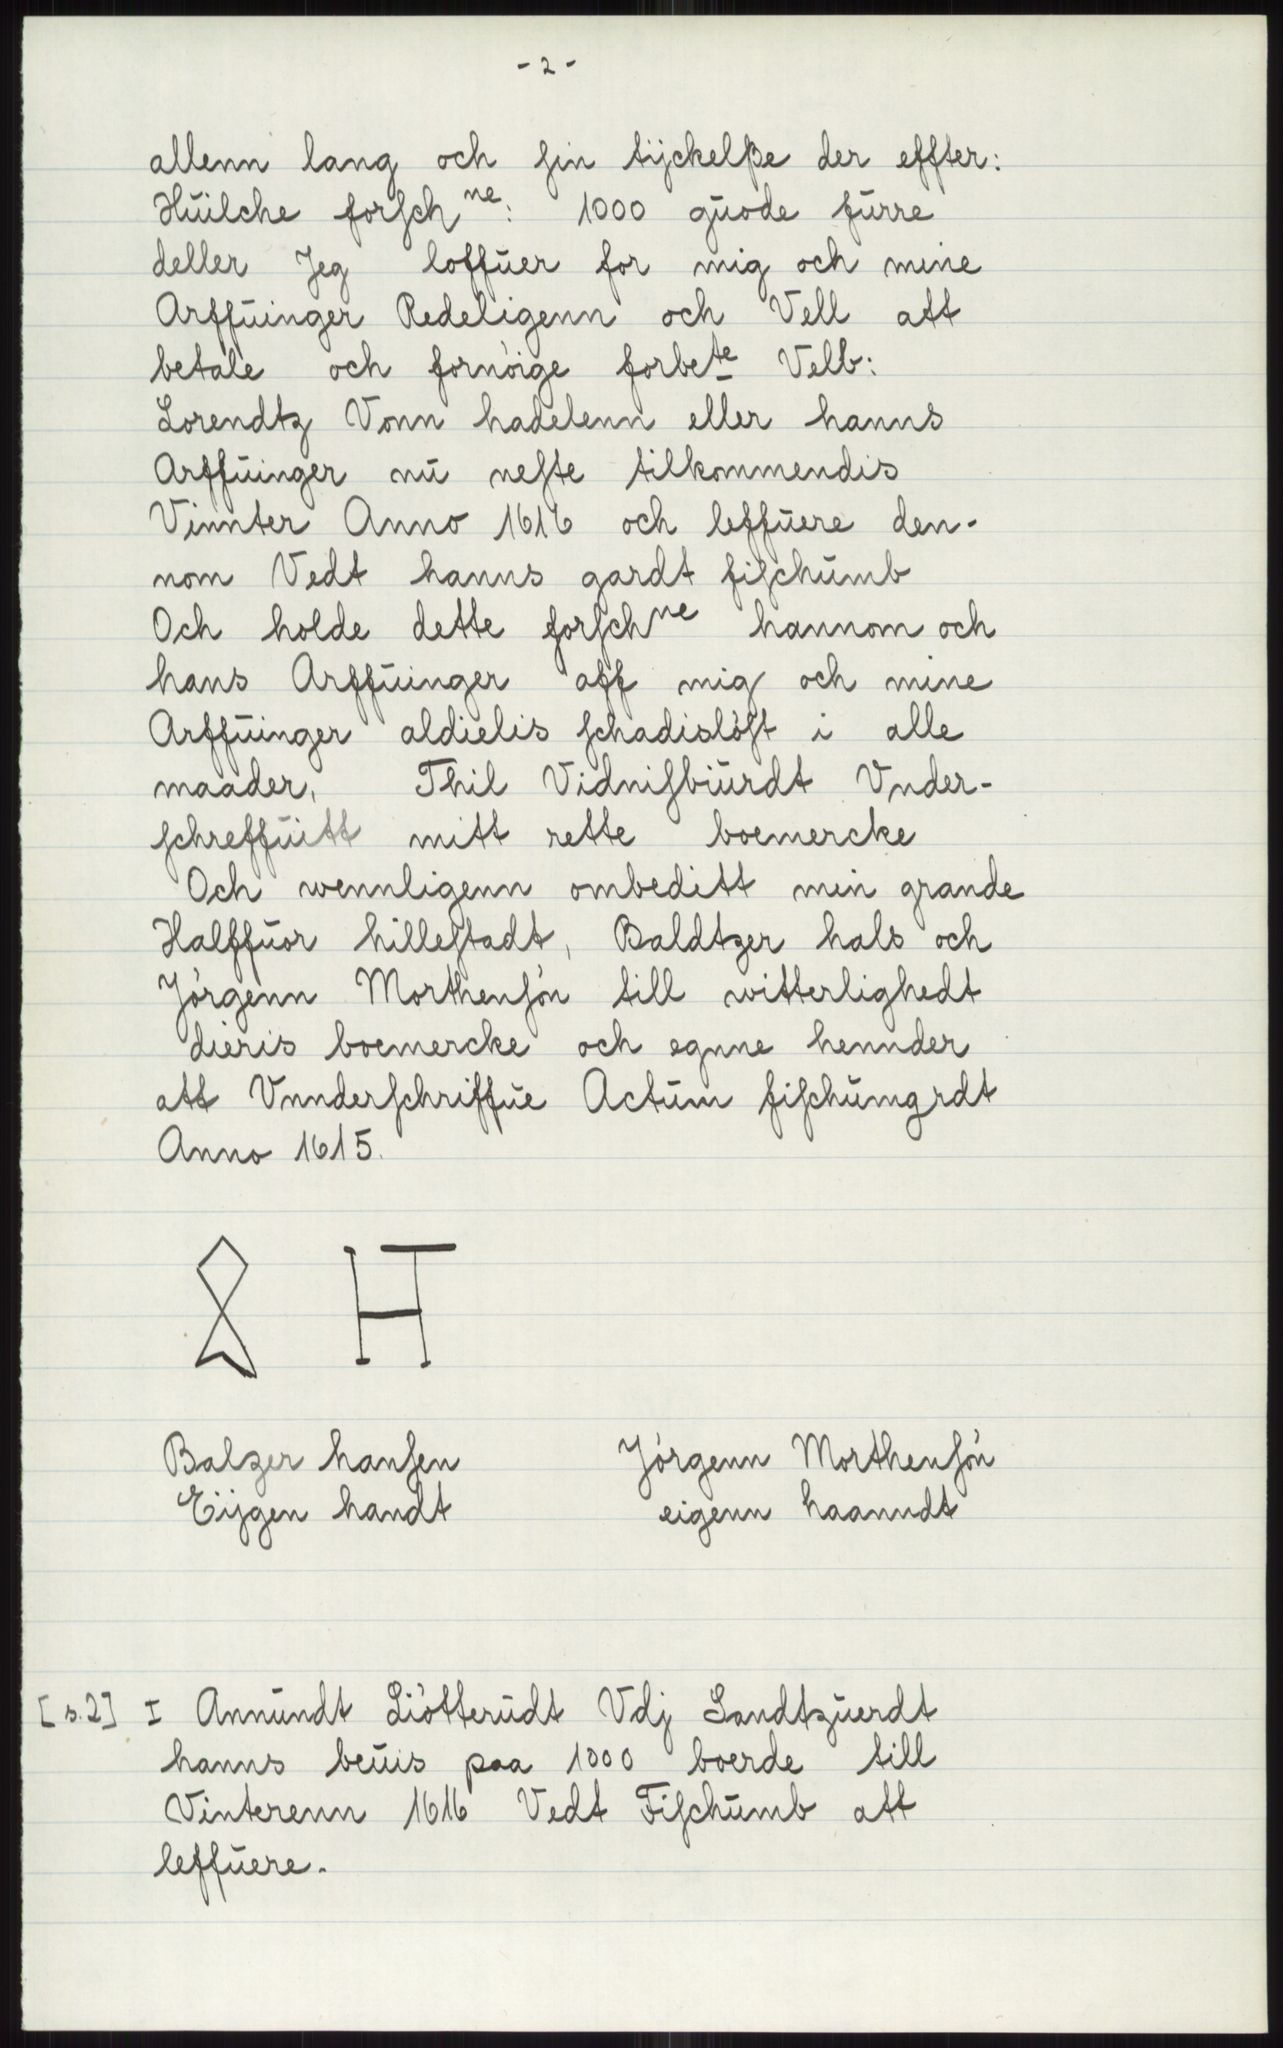 - 2 -
allenn lang och ſin tijckelße der effter:
Hŭilche forſch ne: 1000 gŭode fŭrre
deller Jeg loffŭer for mig och mine
Arffŭinger Redeligenn och Vell att
betale och fornöige forbete Velb:
Lorendtz Vonn hadelenn eller hanns
Arffŭinger nŭ neſte tilkommendis
Vinnter Anno 1616 och leffŭere den-
nom Vedt hanns gardt fiſchŭmb
Och holde dette forſchne hannom och
hans Arffŭinger aff mig och mine
Arffŭinger aldielis ſchadislöſt i alle
maader, Thil Vidniſbiŭrdt Vnder-
ſchreffŭitt mitt rette boemercke
Och wennligenn ombeditt min grande
Halffŭor hilleſtadt, Baldtzer hals och
Jörgenn Morthenſön till witterlighedt
dieris boemercke och egnne hennder
att Vnnderſchriffŭe Actŭm fiſchŭmgrdt
Anno 1615.
HT
Balzer hanſen Jörgenn Morthenſön
Eijgen handt eigenn haanndt
[s.2] I Anŭndt Liötterŭdt Vdj Sandtzŭerdt
hanns beŭis paa 1000 boerde till
Vinterenn 1616 Vedt Fiſchŭmb att
leffŭere.